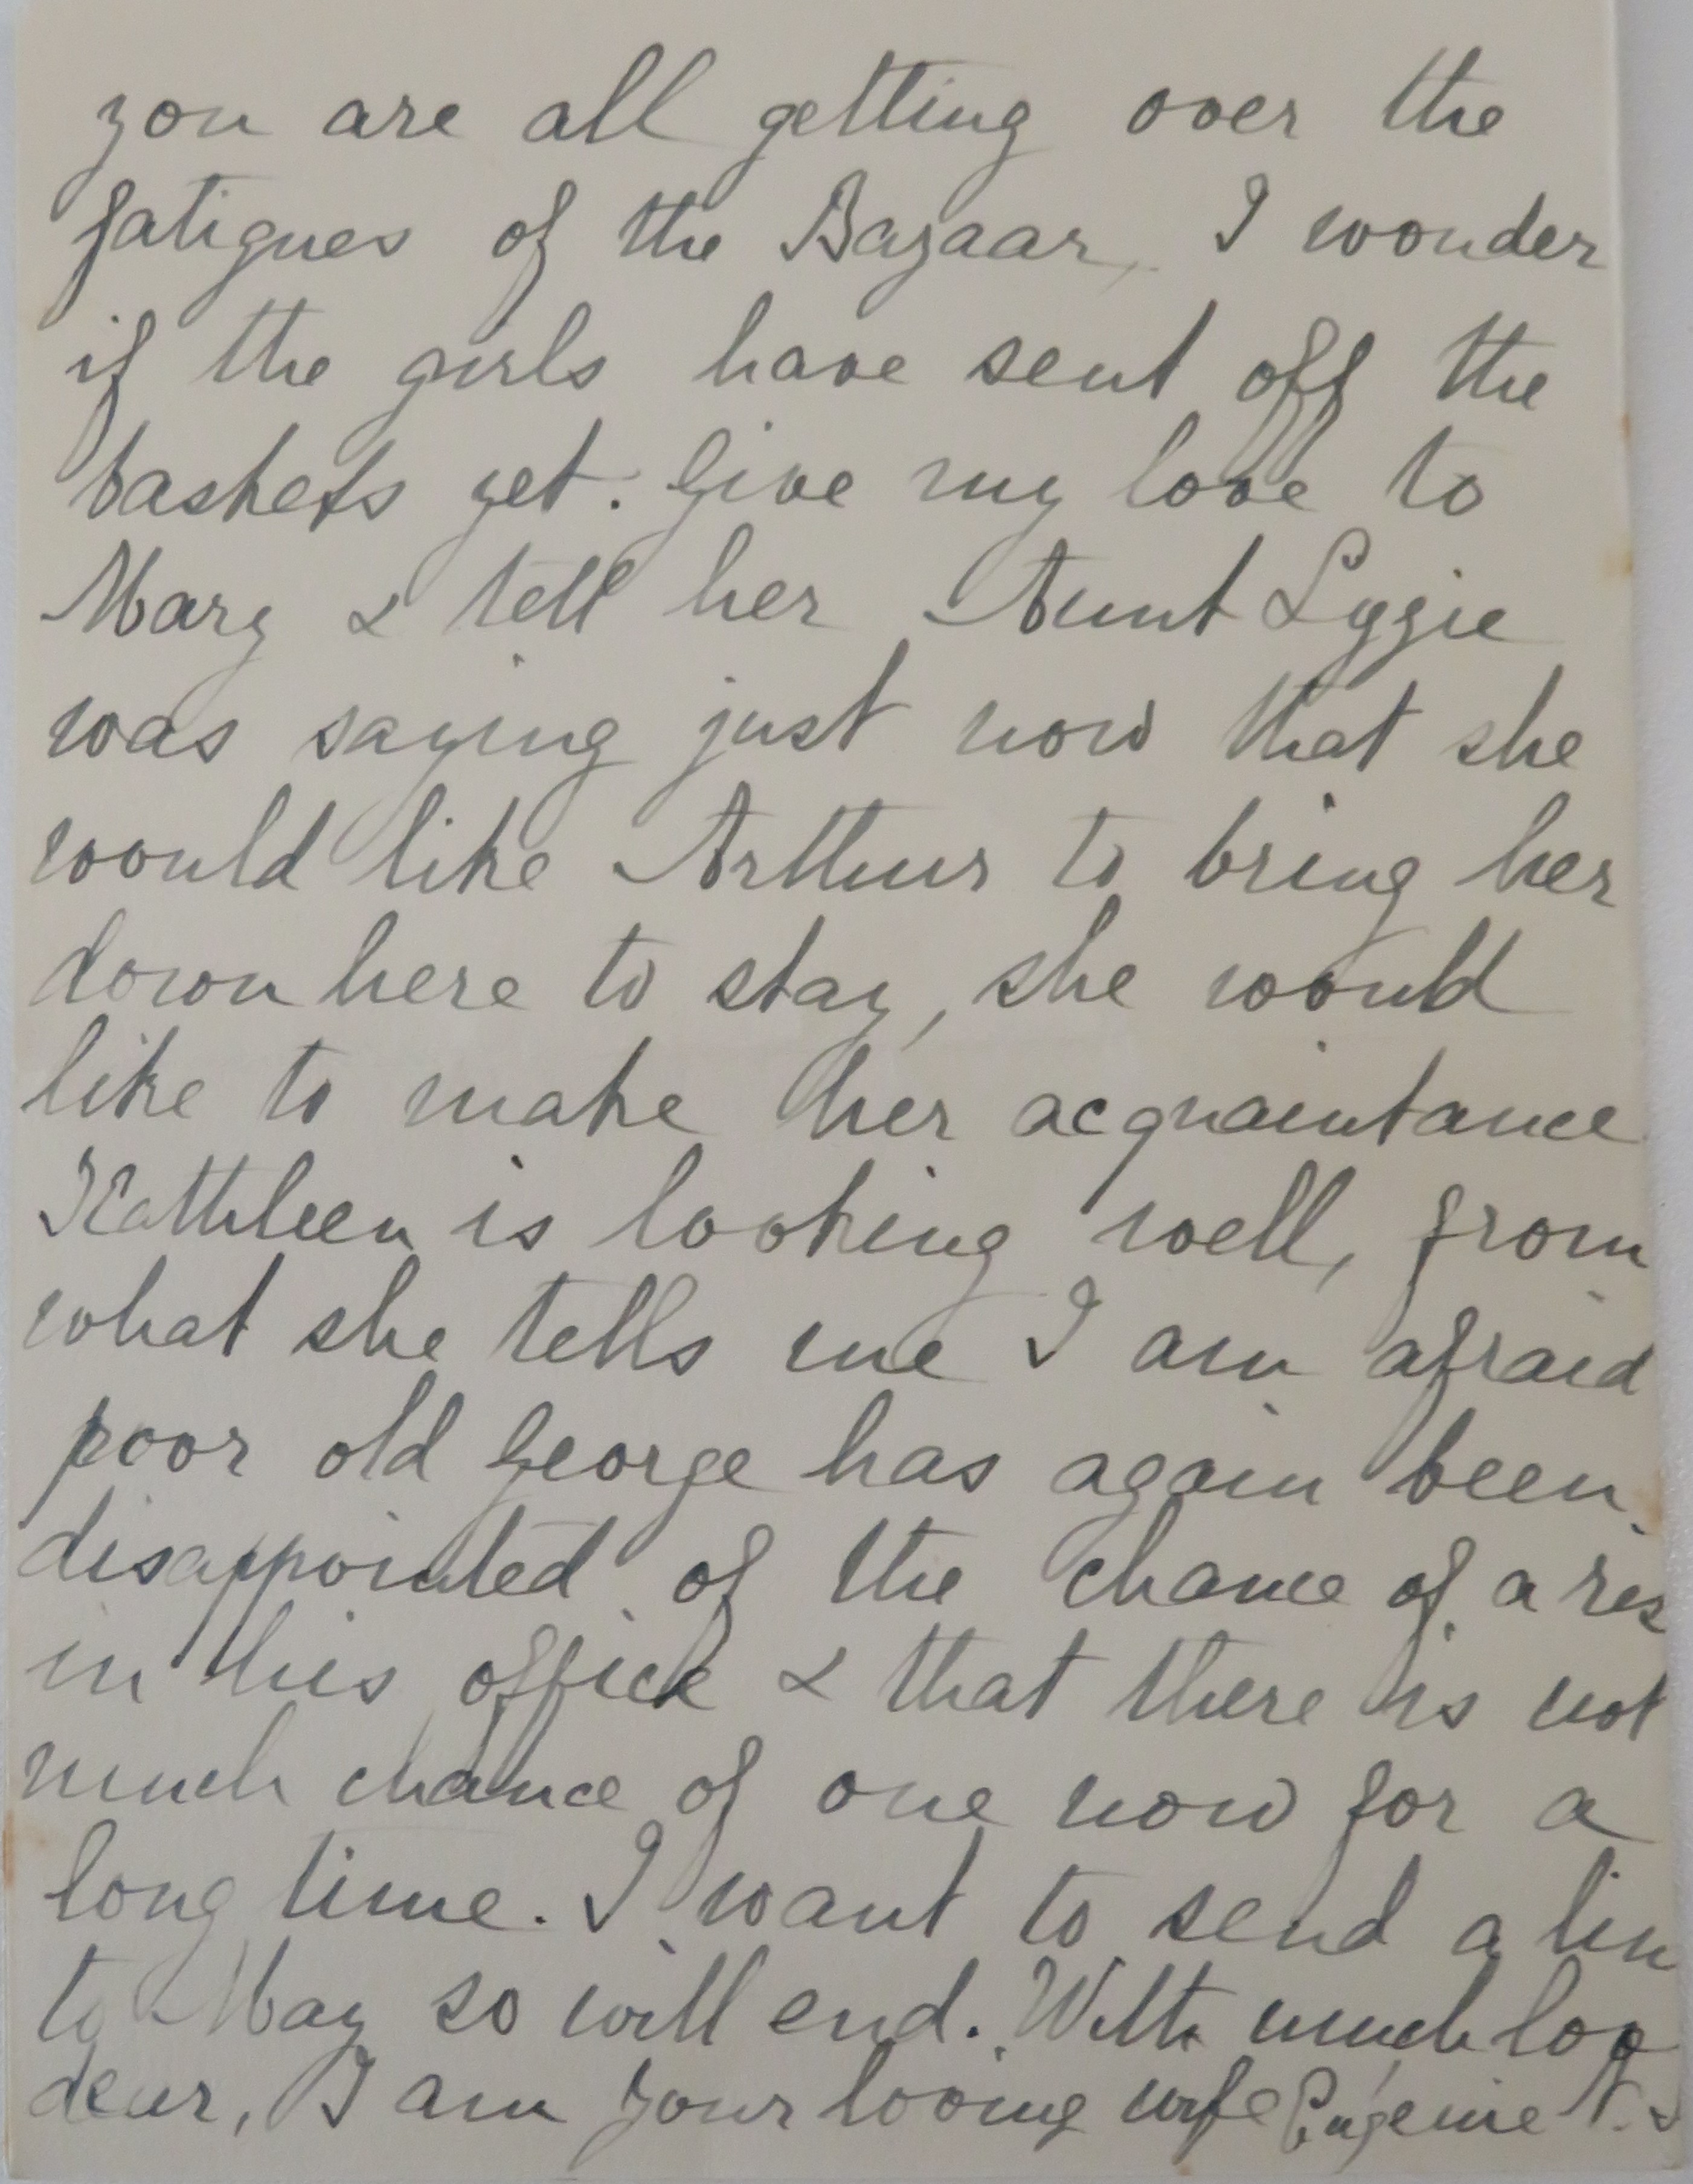 you are all getting over the
fatigues of the Bazaar, I wonder
if the girls have sent off the
baskets yet. Give my love to
Mary & tell her Aunt Lyzie
was saying just now that she
would like Arthur to bring her
down here to stay, she would
like to make her acquaintance
Kathleen is looking well, from
what she tells me I am afraid
poor old George has again been
disappointed of the chance of a res
in his office & that there is not
much chance of one now for a
long time. I want to send a lin
to May so will end. With much lov
dear, I am your loving wife Eugenie